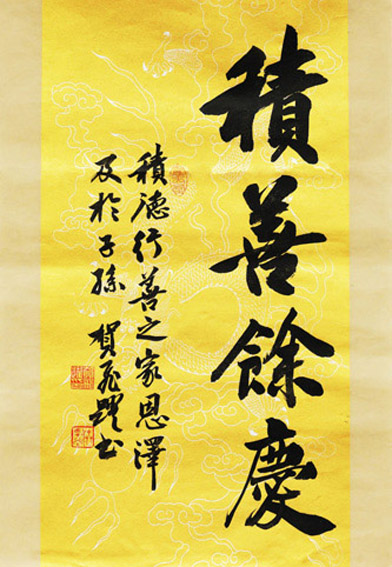 積善餘慶
積德行善之家恩澤
及於子孫 賀飛躍书